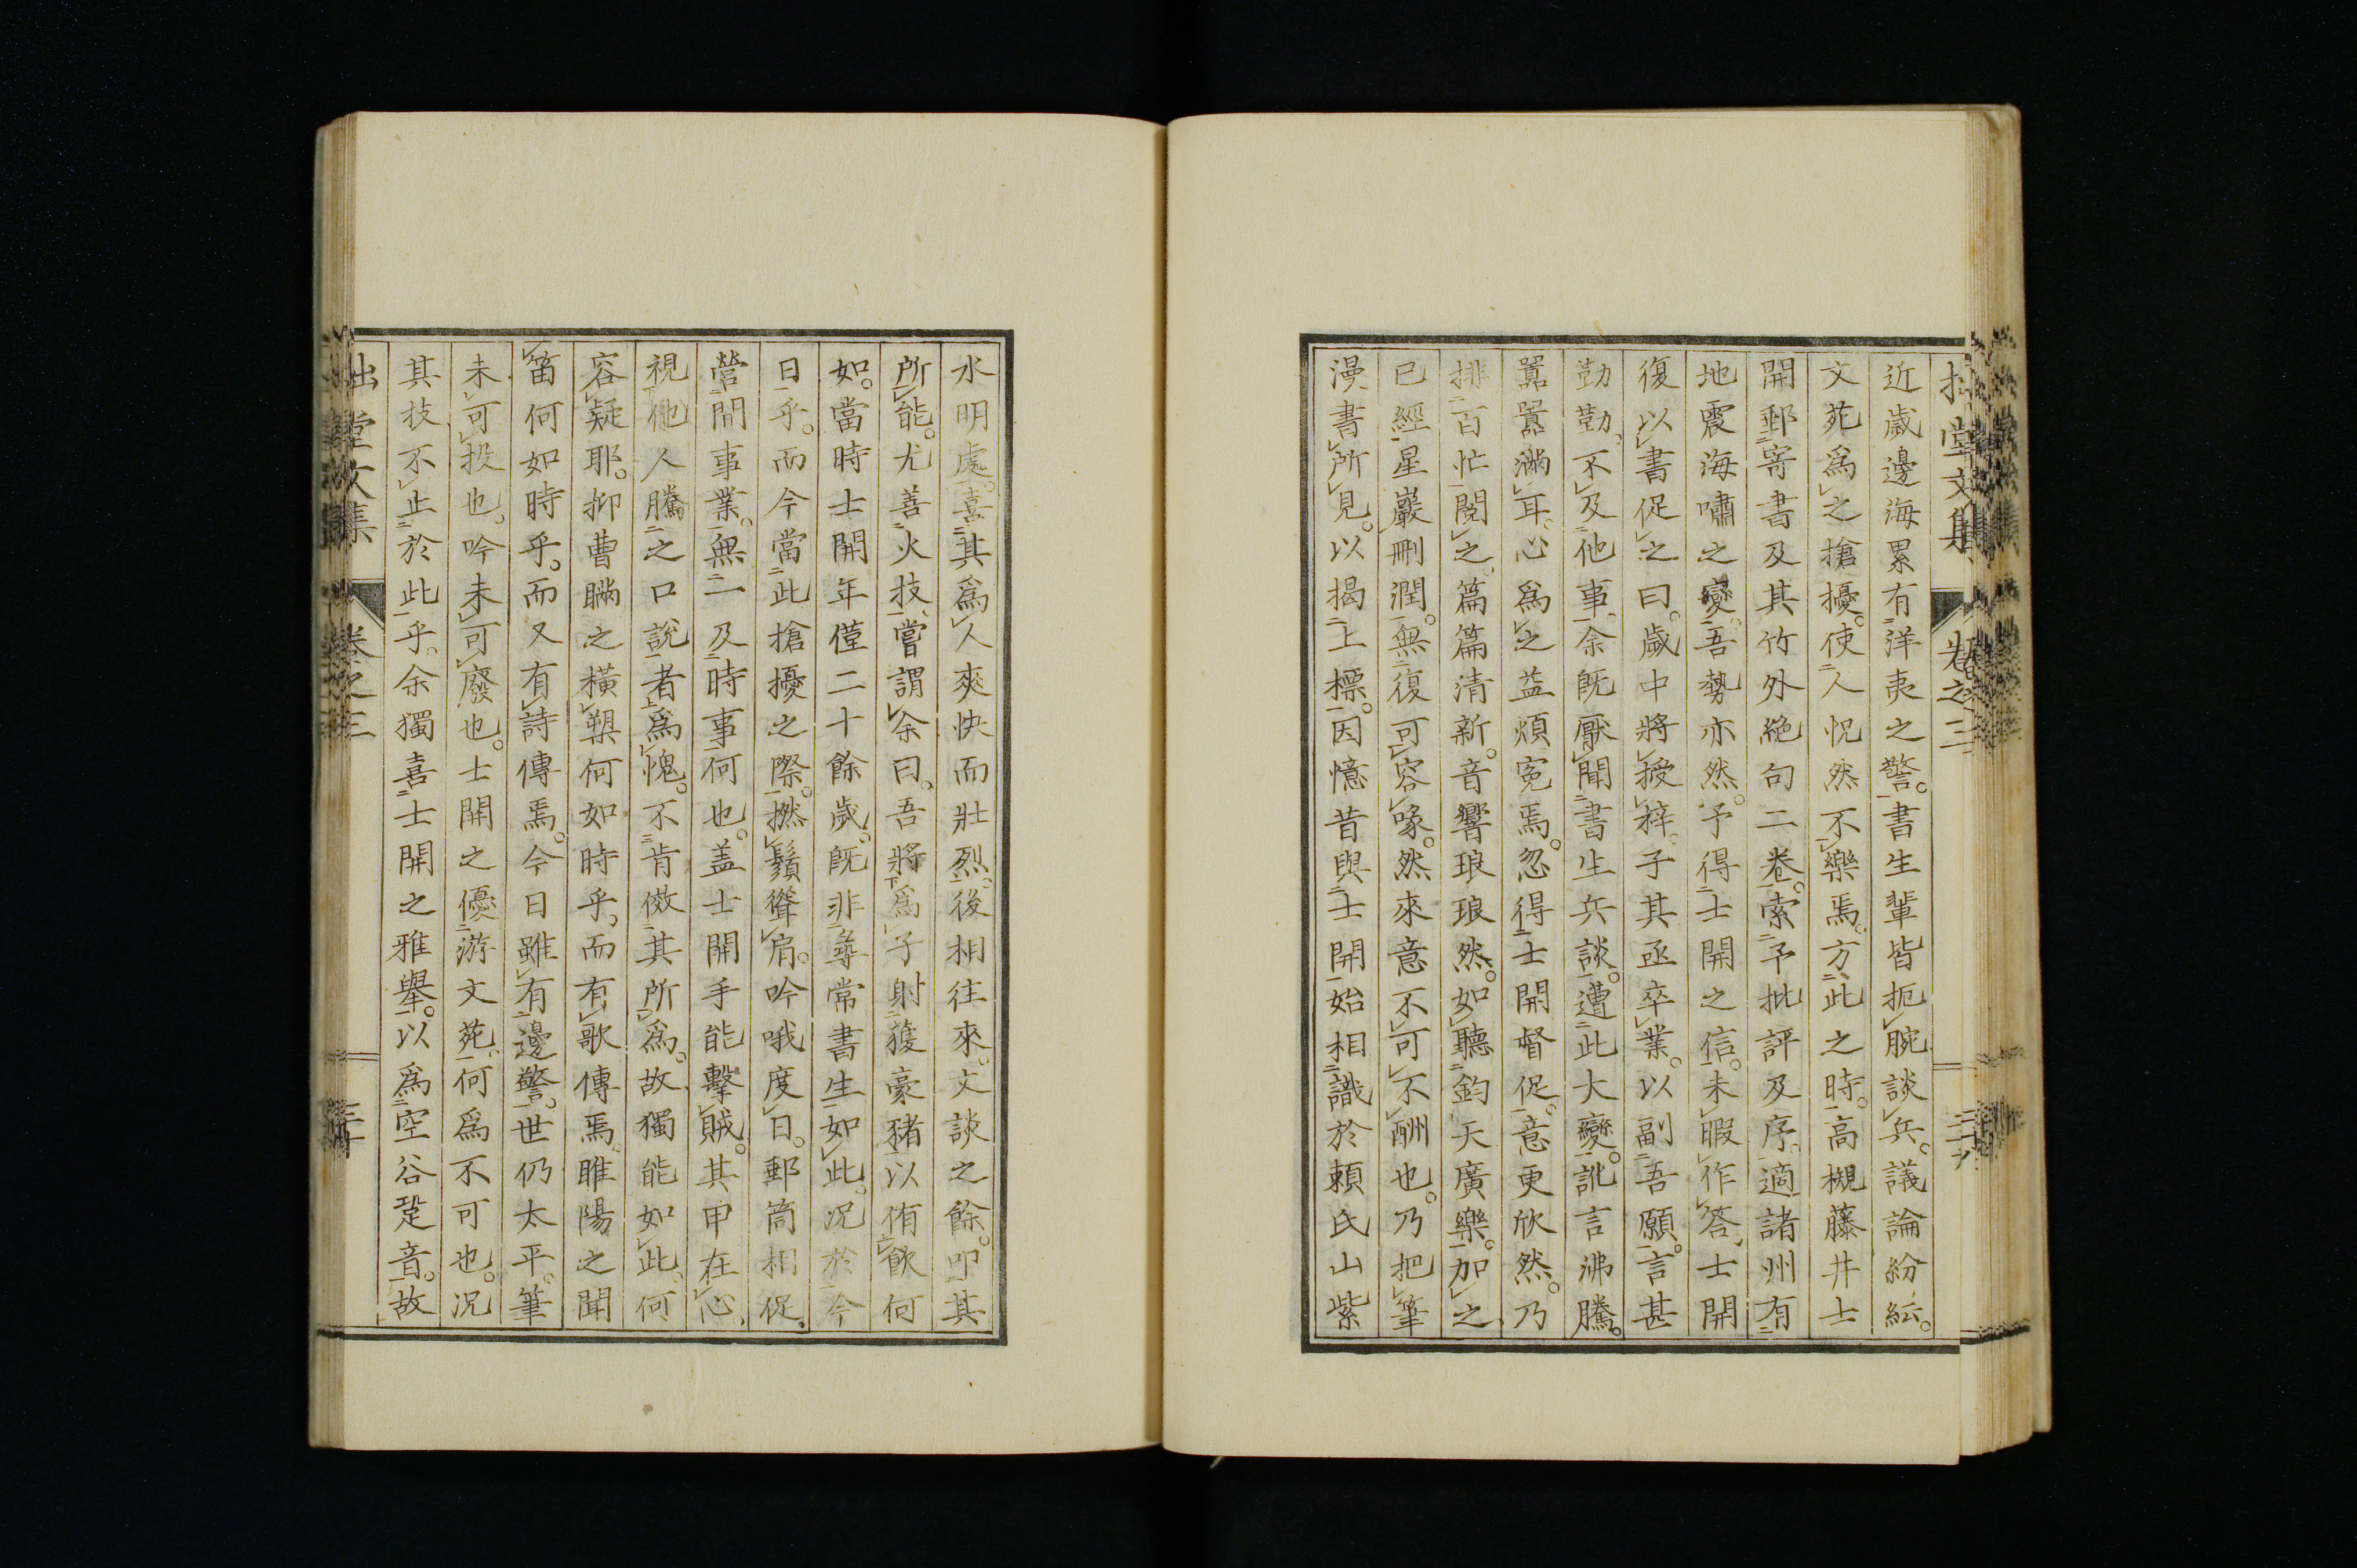 拙堂文集
卷之三
近歲邊海累有洋夷之警。書生輩皆扼腕談兵。議論紛紜。
文苑爲之搶擾。使人怳然不樂焉。方此之時。高槻藤井士
開郵寄書及其竹外絕句二卷。索予批評及序。適諸州有
地震海嘯之變。吾勢亦然。予得士開之信。未暇作答、士開
復以書促之曰。歲中將授梓。子其亟卒業。以副吾願。言甚
勤勤、不及他事、余旣厭聞書生兵談。遭此大變。訛言沸騰。
囂囂滿耳、心爲之益煩寃焉。忽得士開督促。意更欣然。乃
排百忙閱之、篇篇清新。音響琅琅然。如聽鈞天廣樂。加之、
已經星巖刪潤。無復可容喙。然來意不可不酬也。乃把筆
漫書所見。以揭上標。因憶昔與士開始相識於賴氏山紫
水明處。喜其爲人爽快而壯烈。後相往來。文談之餘。叩其
所能。尤善火技、嘗謂余曰、吾將爲子射獲豪豬以侑飮何
如。當時士開年僅二十餘歲。旣非尋常書生如此。况於今
日乎。而今當此搶擾之際。撚鬚聳肩。吟哦度日。郵筒相促、
營間事業。無一及時事何也。盖士開手能擊賊。其甲在心、
視他人騰之口說者爲愧。不肯傚其所爲。故獨能如此。何
容疑耶。抑曹瞞之橫槊何如時乎、而有歌傳焉、睢陽之聞
笛何如時乎。而又有詩傳焉。今日雖有邊警。世仍太平。筆
未可投也。吟未可廢也。士開之優游文苑、何爲不可也。况
其技不止於此乎。余獨喜士開之雅舉。以爲空谷跫音。故
拙堂文集
卷之三